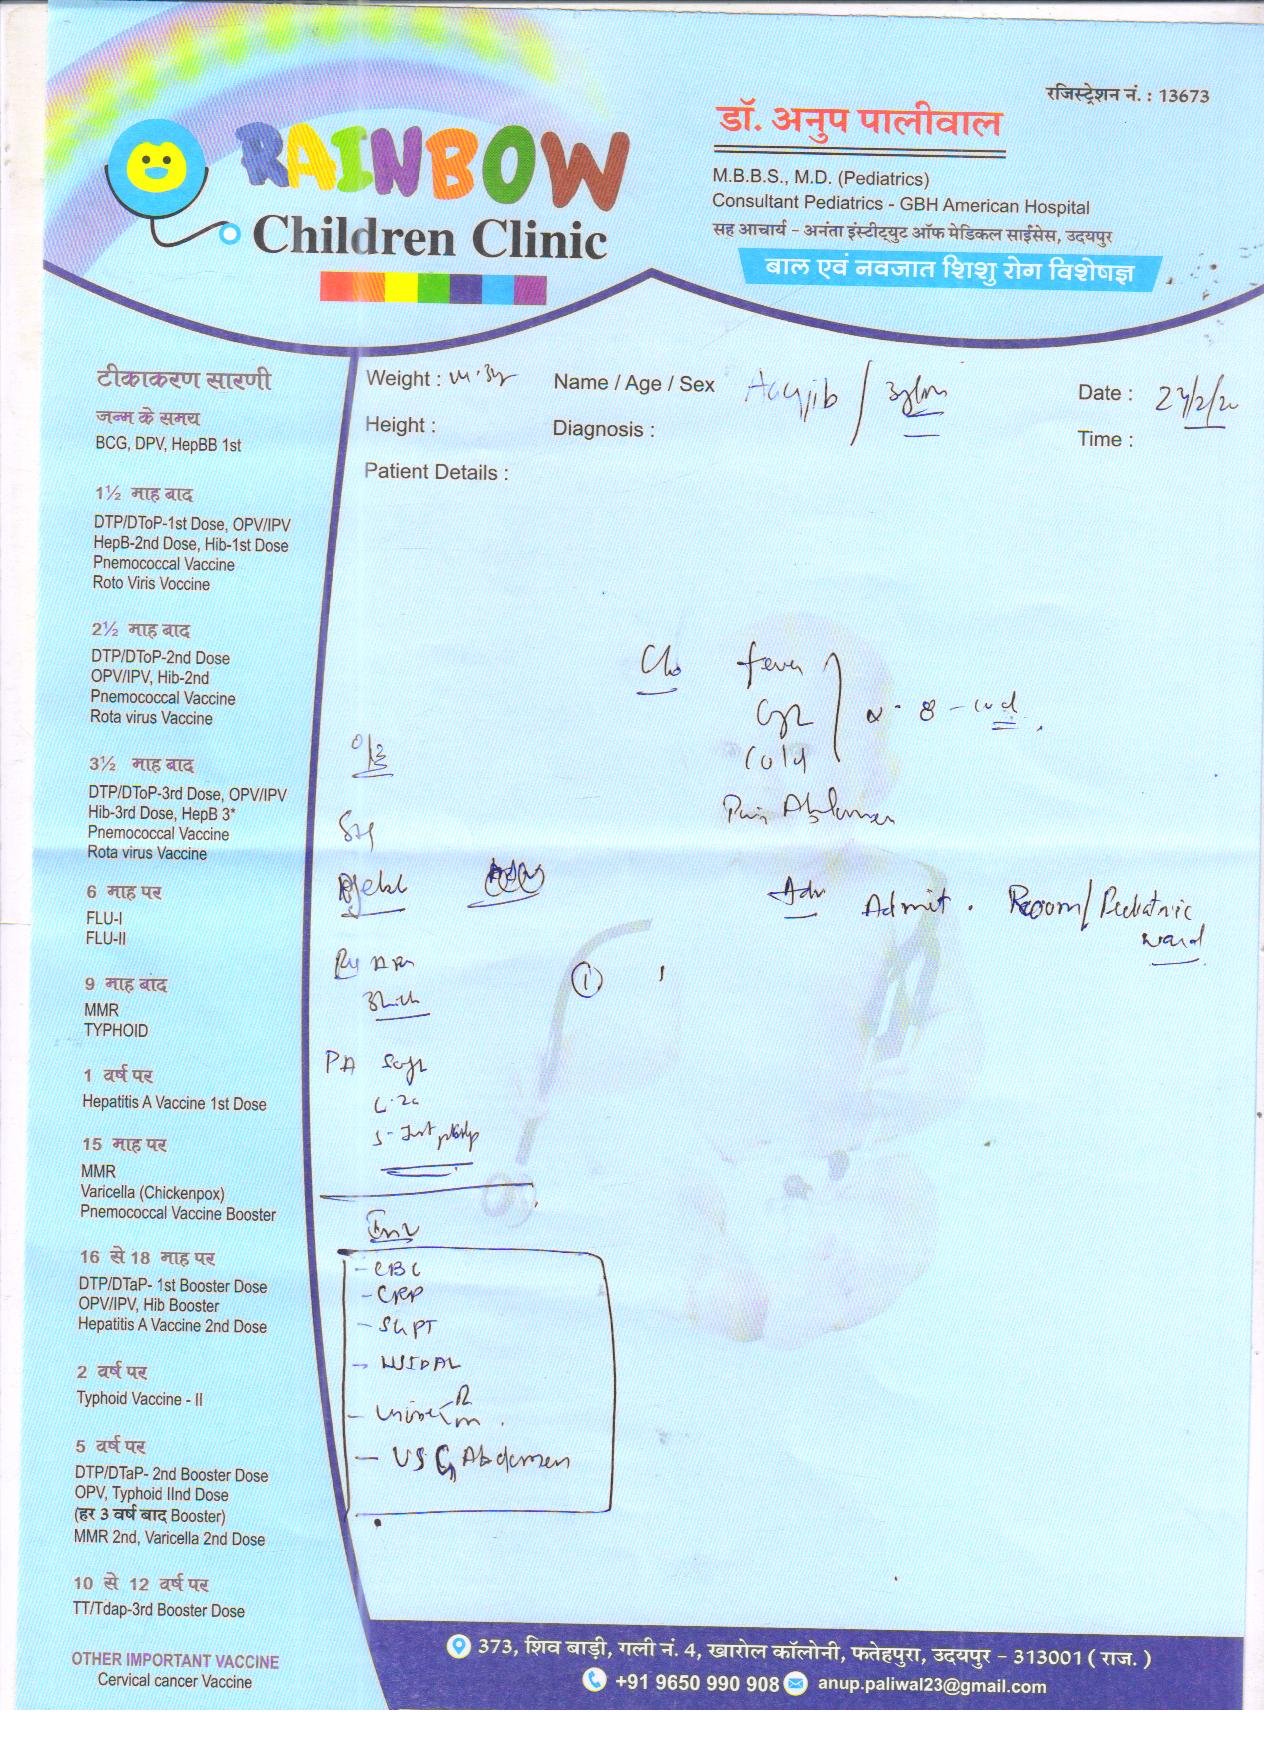 रजिस्ट्रेशन नं. : 13673
डॉ. अनुप पालीवाल
RAINBOW
Children Clinic
M.B.B.S., M.D. (Pediatrics)
Consultant Pediatrics - GBH American Hospital
सह आचार्य - अनंता इंस्टीट्युट ऑफ मेडिकल साईसेस, उदयपुर
बाल एवं नवजात शिशु रोग विशेषज्ञ
Weight :
Name / Age / Sex
Date :
Height :
Diagnosis :
Time :
Patient Details :
टीकाकरण सारणी
जन्म के समय
BCG, DPV, HepBB 1st
1½ माह बाद
DTP/DToP-1st Dose, OPV/IPV
HepB-2nd Dose, Hib-1st Dose
Pnemococcal Vaccine
Roto Viris Voccine
2½ माह बाद
DTP/DToP-2nd Dose
OPV/IPV, Hib-2nd
Pnemococcal Vaccine
Rota virus Vaccine
3½ माह बाद
DTP/DToP-3rd Dose, OPV/IPV
Hib-3rd Dose, HepB 3*
Pnemococcal Vaccine
Rota virus Vaccine
6 माह पर
FLU-I
FLU-II
9 माह बाद
MMR
TYPHOID
1 वर्ष पर
Hepatitis A Vaccine 1st Dose
15 माह पर
MMR
Varicella (Chickenpox)
Pnemococcal Vaccine Booster
16 से 18 माह पर
DTP/DTaP- 1st Booster Dose
OPV/IPV, Hib Booster
Hepatitis A Vaccine 2nd Dose
2 वर्ष पर
Typhoid Vaccine - II
5 वर्ष पर
DTP/DTaP- 2nd Booster Dose
OPV, Typhoid IInd Dose
(हर 3 वर्ष बाद Booster)
MMR 2nd, Varicella 2nd Dose
10 से 12 वर्ष पर
TT/Tdap-3rd Booster Dose
OTHER IMPORTANT VACCINE
Cervical cancer Vaccine
C/o fever
Cold
Pain Abdomen
Adv Admit . Room/Pediatric
ward
O/E
PA Soft
Inv
- CBC
- CRP
- SGPT
- WIDAL
- Urine R/m
- USG Abdomen
373, शिव बाड़ी, गली नं. 4, खारोल कॉलोनी, फतेहपुरा, उदयपुर - 313001 ( राज. )
+91 9650 990 908
anup.paliwal23@gmail.com